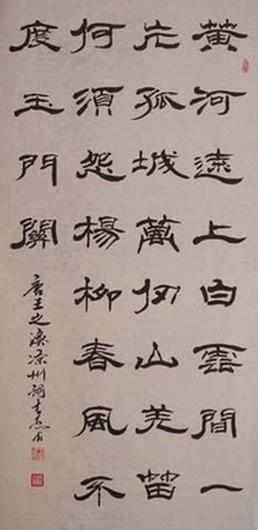 黄河遠上白雲間一
片孤城萬仞山羌笛
何須怨楊柳春風不
度玉門關
唐王之渙涼州詞